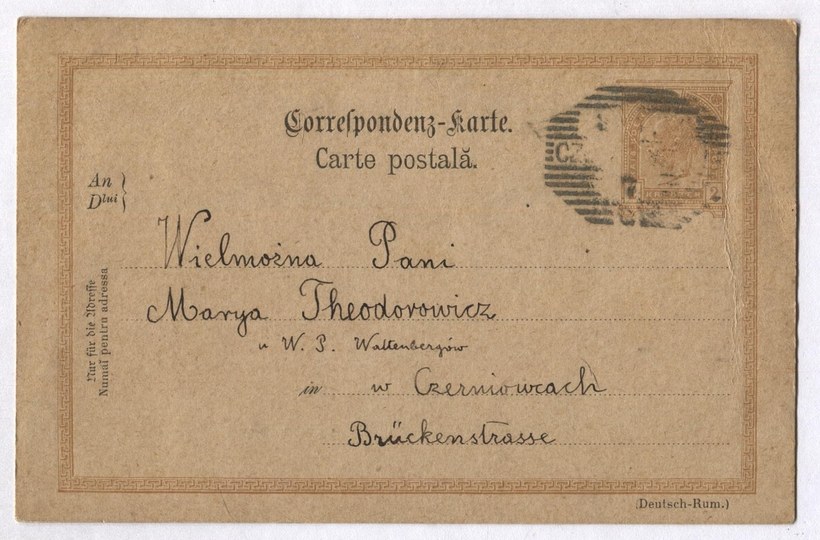 Correspondenz-Karte.
Carte postală.
CZ
2
An
Dlui
Wielmożna Pani
Marya Theodorowicz
u W. P. Waltenbergów
in w Czerniowcach
Brückenstrasse
Nur für die Adresse
Numaĭ pentru adressa
(Deutsch-Rum.)